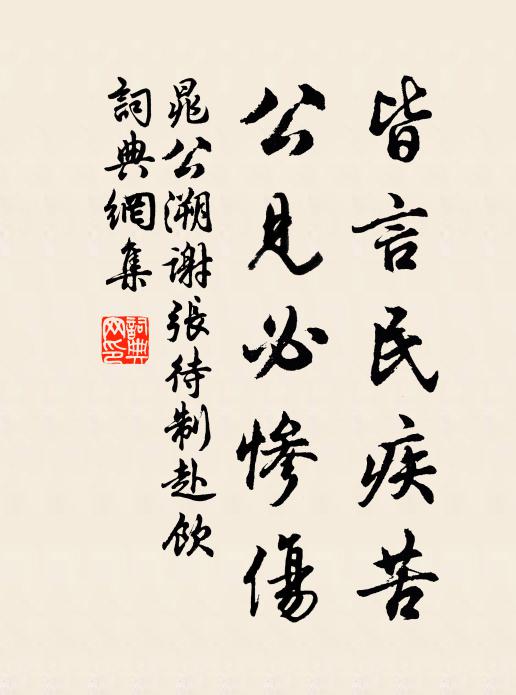 皆言民疾苦
公見必慘傷
晁公溯謝張待制赴飲
詞典網集
詞典网印